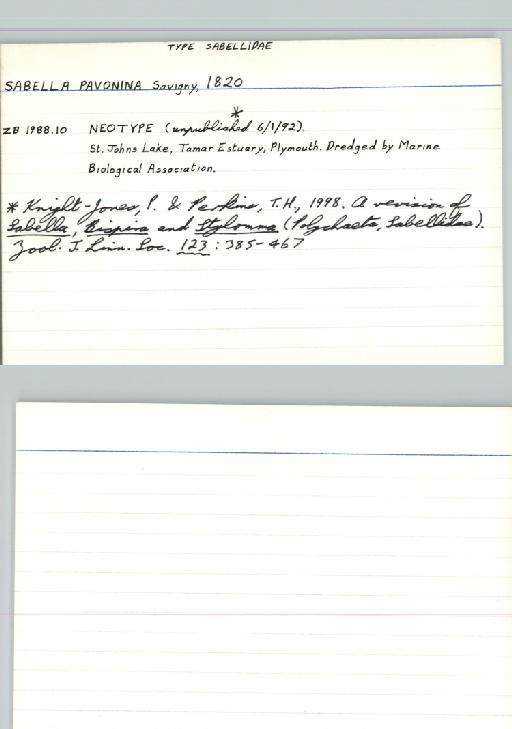 TYPE SABELLIDAE
SABELLA PAVONINA Savigny, 1820
*
ZB 1988.10 NEOTYPE (unpublished 6/1/92).
St. Johns Lake, Tamar Estuary, Plymouth. Dredged by Marine
Biological Association.
* Knight-Jones, P. & Perkins, T.H., 1998. A revision of
Sabella, Bispira and Stylomma (Polychaeta, Sabellidae).
Zool. J. Linn. Soc. 123 : 385-467